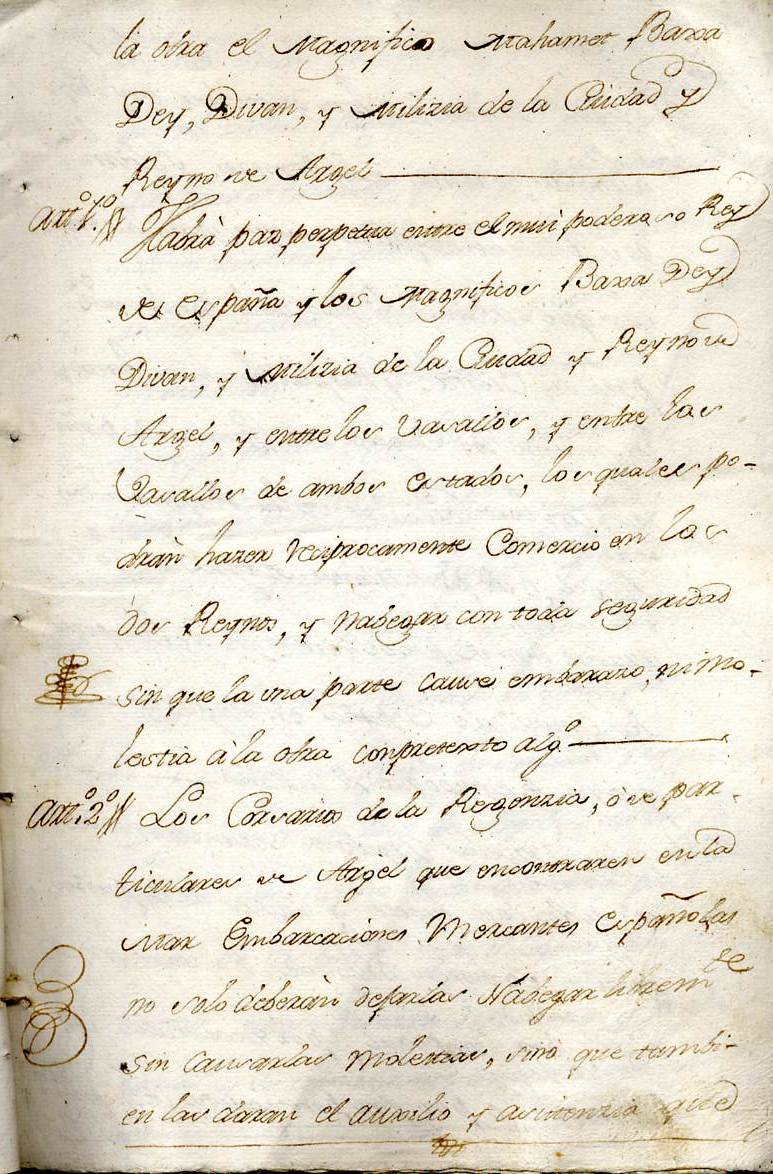 la otra el Magnifico Mahamet Baxa
Dey, Divan, y Milizia de la Ciudad y
Reyno de Argel
Art.º 1.º Habrà paz perpetua entre el mui poderoso Rey
de España y los Magnificos Baxa Dey
Divan, y Milizia de la Ciudad y Reyno de
Argel, y entre los Vasallos, y entre los
Vasallos de ambos estados, los quales po-
dràn hazer reciprocamente Comercio en los
dos Reynos, y Nabegar con toda seguridad
sin que la una parte cause embarazo, ni mo-
lestia à la otra con pretexto alg.º
Art.º 2.º Los Corsarios de la Regenzia, ò de par-
ticulares de Argel que encontraren en la
Mar Embarcaciones Mercantes Españolas
no solo deberàn dejarlas Nabegar librem.te
sin causarlas molestias, sino que tambi-
en las daran el auxilio y asistenzia que